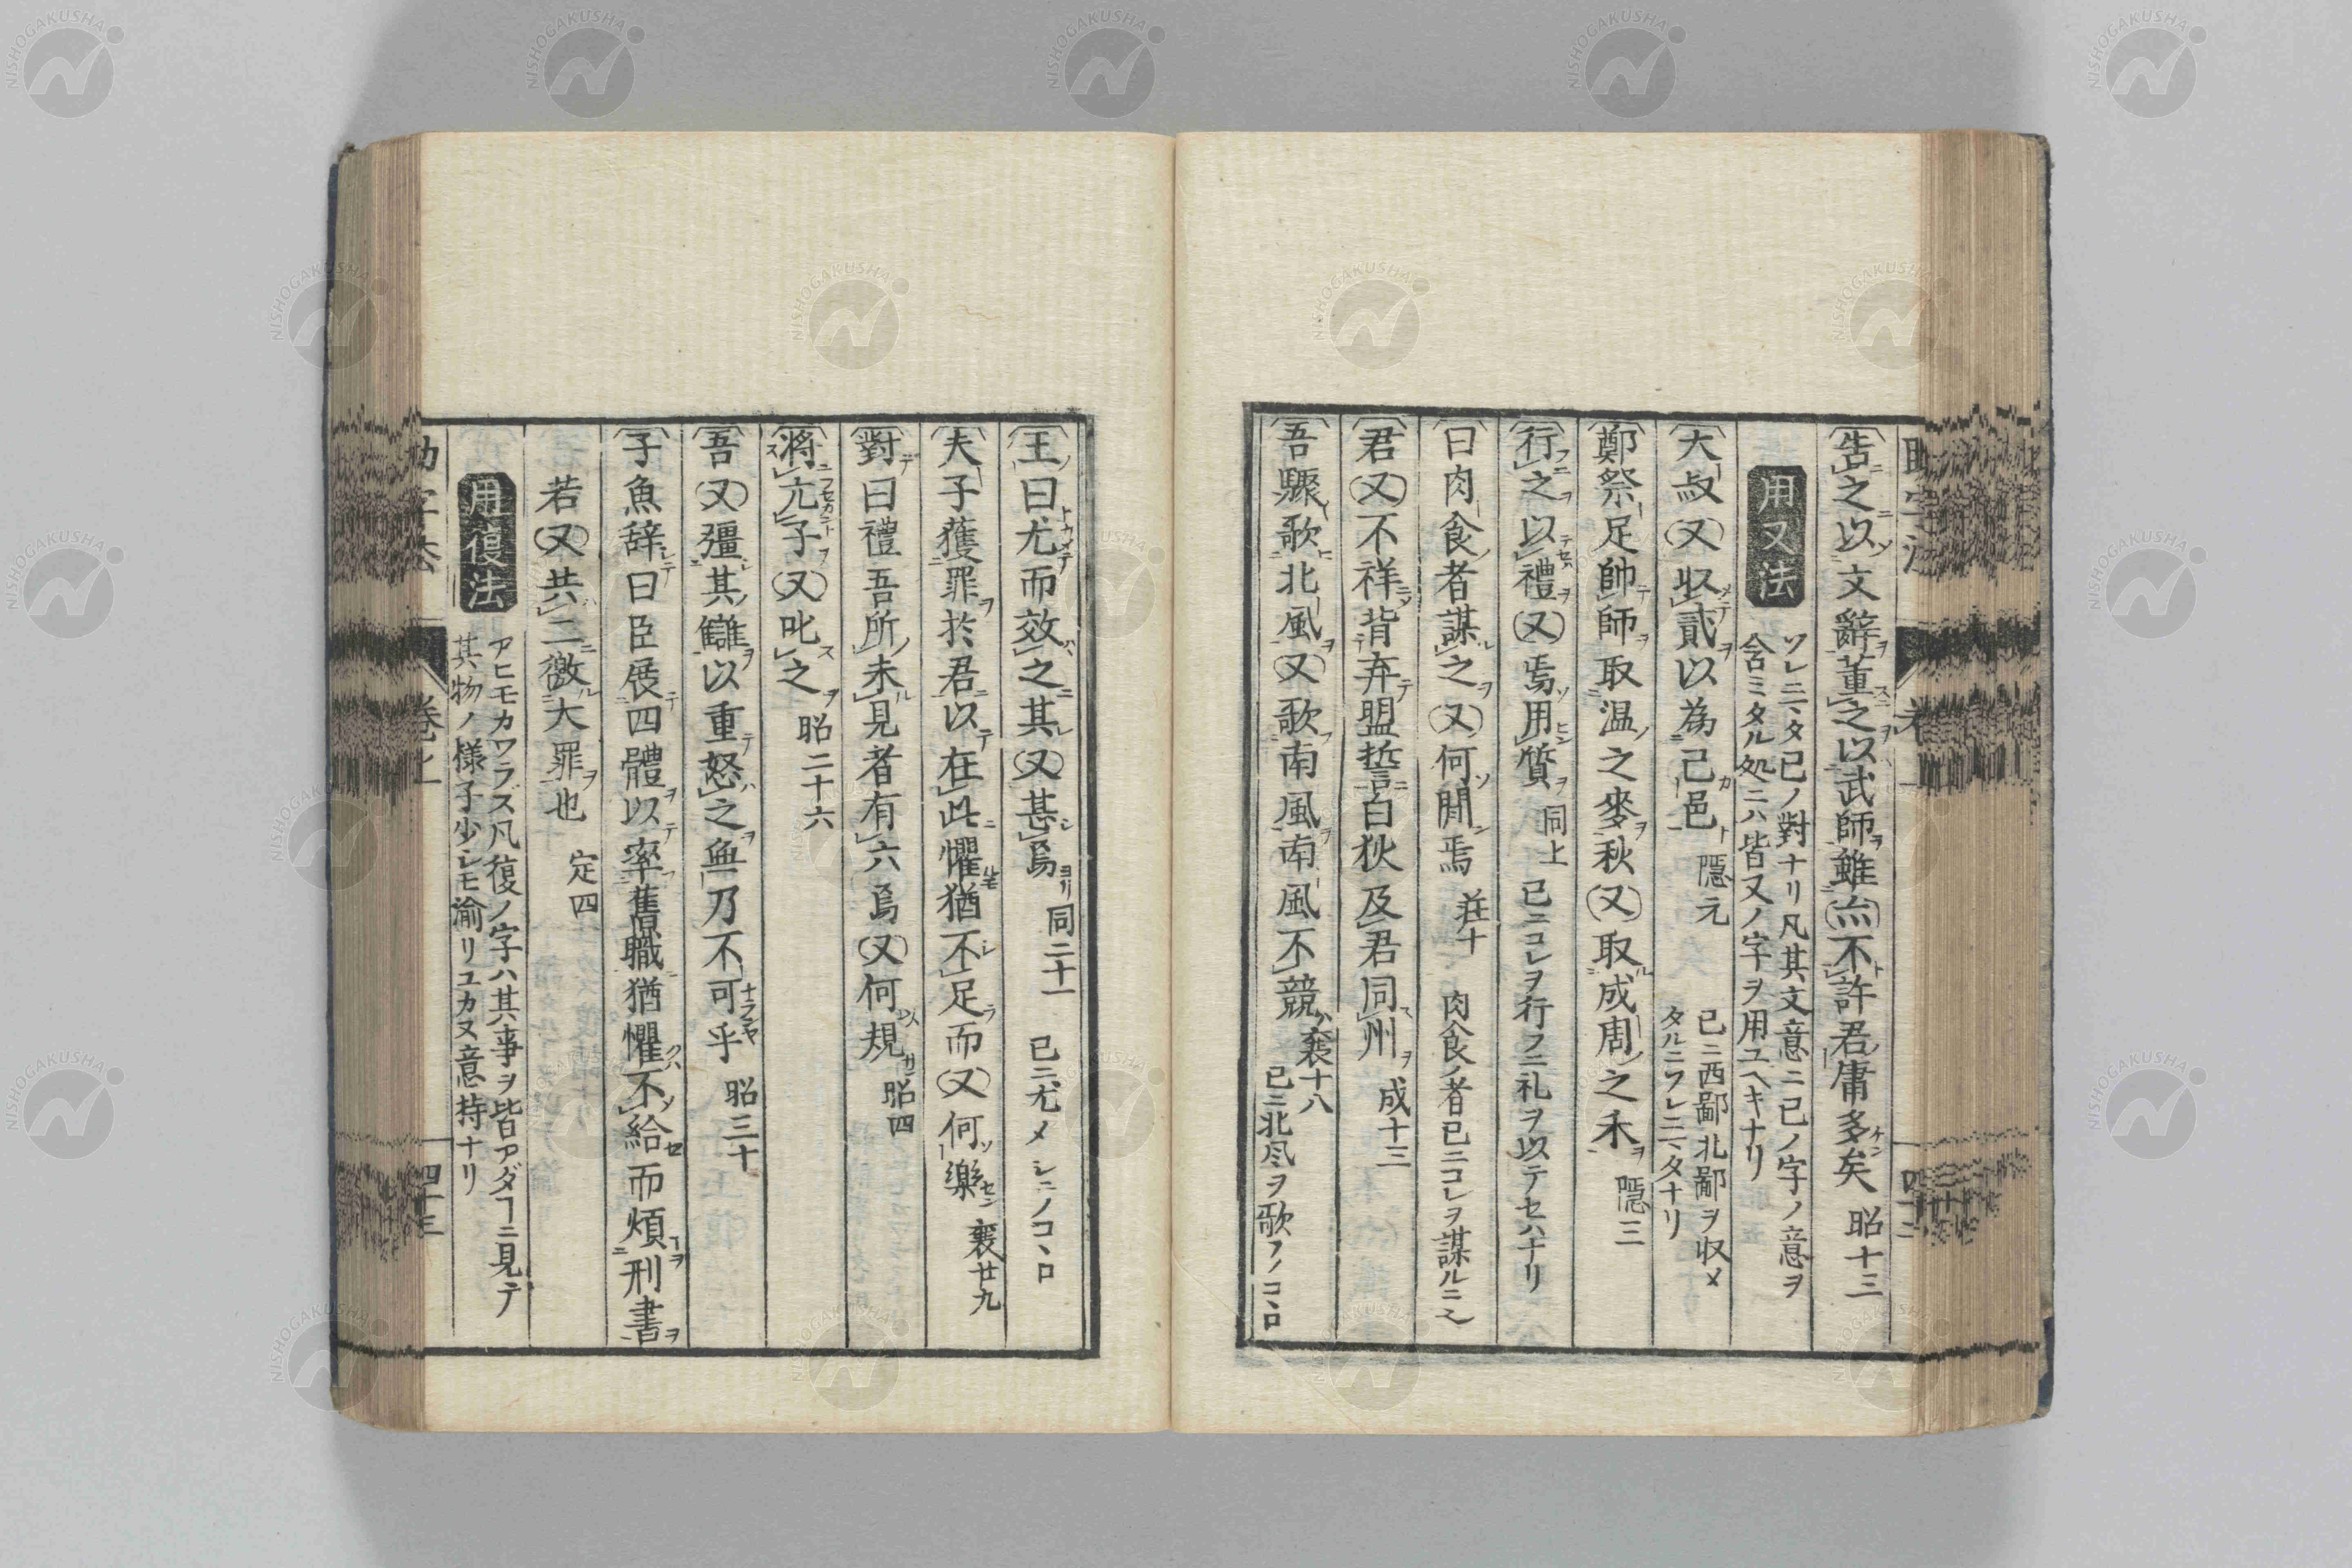 告之以文辭董之以武師雖亦不許君庸多矣 昭十三
用又法
ソレニマタ已ノ對ナリ凡其文意ニ已ノ字ノ意ヲ
含ミタル処ニハ皆又ノ字ヲ用ユヘキナリ
大叔又收貳以為己邑 隠元
已ニ西鄙北鄙ヲ収メ
タルニソレニマタナリ
鄭祭足帥師取温之麥秋又取成周之禾 隠三
行之以禮又焉用質 同上 已ニコレヲ行フニ礼ヲ以テセハナリ
曰肉食者謀之又何間焉 荘十 肉食ノ者已ニコレヲ謀ルニ
君又不祥背弃盟誓白狄及君同州 成十三
吾驟歌北風又歌南風南風不競 襄十八
已ニ北風ヲ歌フノコヽロ
王曰尤而效之其又甚焉 同二十一 已ニ尤メシニノコヽロ
夫子獲罪於君以在此懼猶不足而又何樂 襄廿九
對曰禮吾所未見者有六焉又何規 昭四
將亢子又叱之 昭二十六
吾又彊其讎以重怒之無乃不可乎 昭三十
子魚辞曰臣展四體以率舊職猶懼不給而煩刑書
若又共二徼大罪也 定四
用復法
アヒモカワラズ凡復ノ字ハ其事ヲ皆アダヿニ見テ
其物ノ様子少シモ渝リユカヌ意持ナリ
卷上
四十三